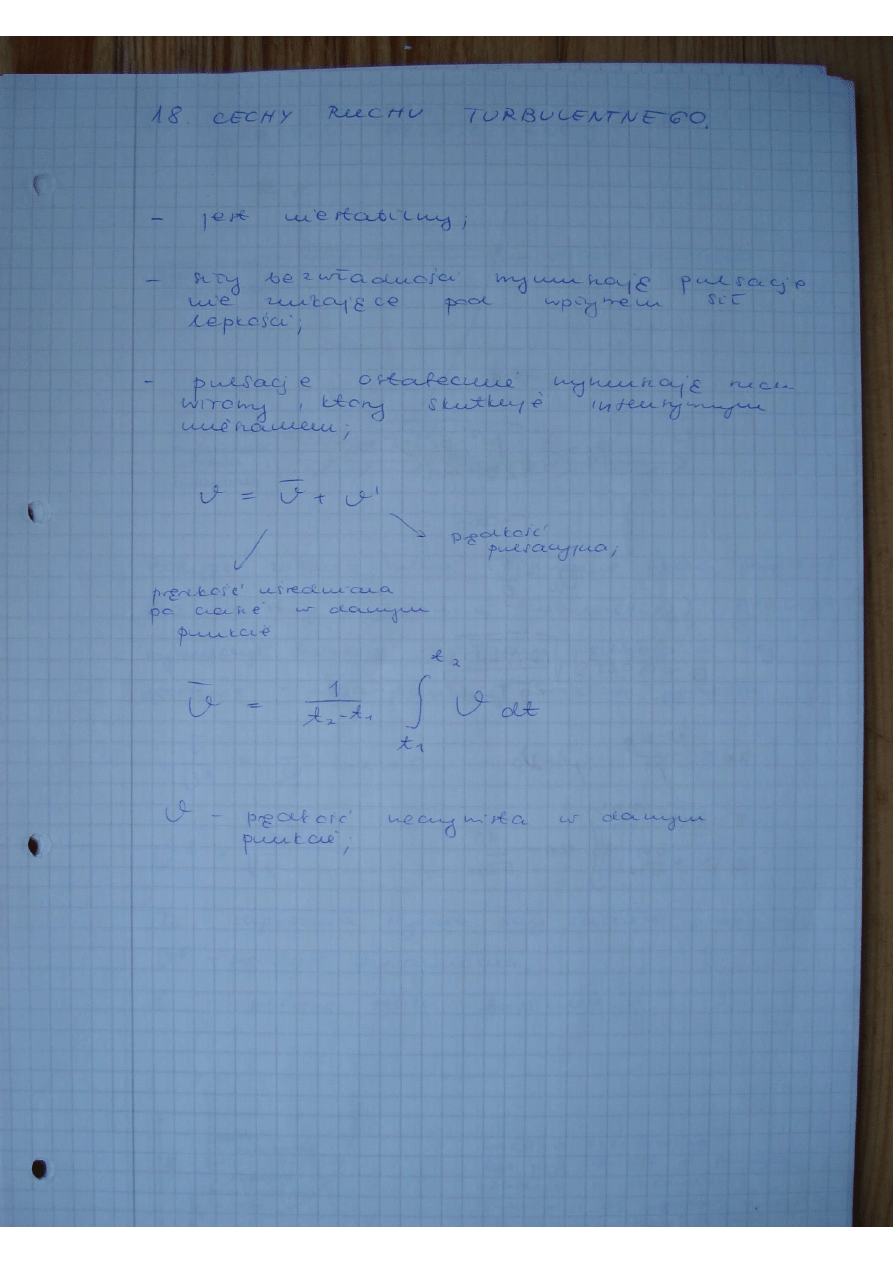 18. CECHY RUCHU TURBULENTNEGO.
- jest niestabilny;
- siły bezwładności wymuszają pulsacje
nie znikające pod wpływem sił
lepkości;
- pulsacje ostatecznie wymuszają ruch
wirowy, który skutkuje intensywnym
mieszaniem;
ϑ = ϑ̅ + ϑ'
prędkość
pulsacyjna;
prędkość uśredniona
po czasie w danym
punkcie
t₂
ϑ̅ = 1/(t₂-t₁) ∫ ϑ dt
t₁
ϑ - prędkość rzeczywista w danym
punkcie;